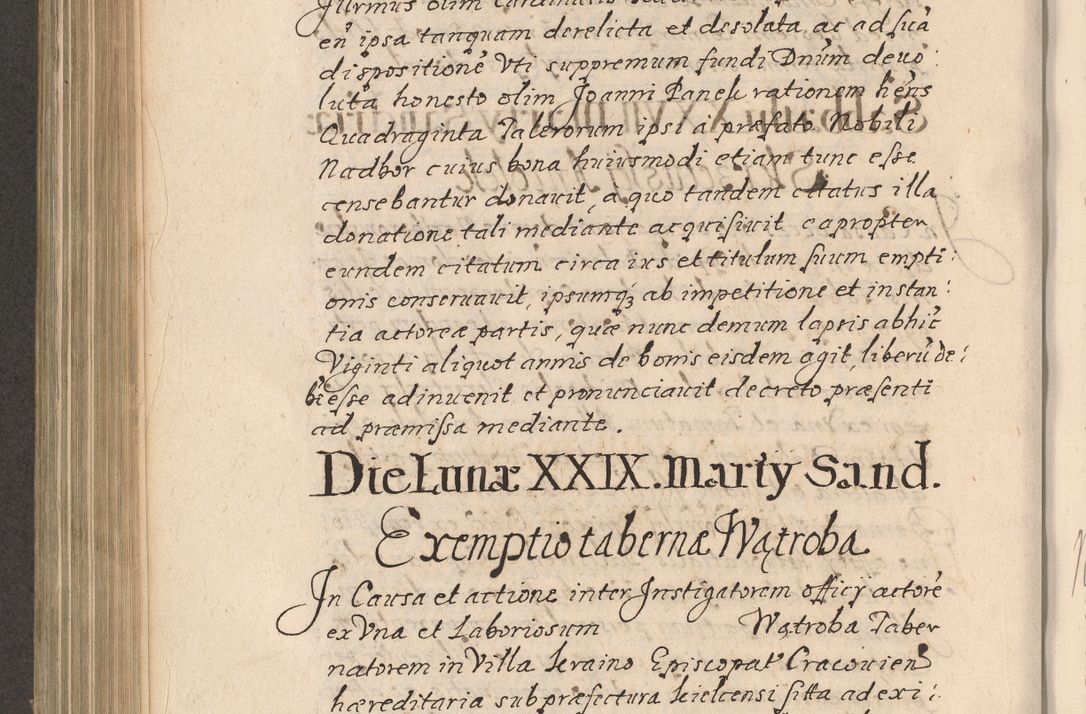 Illrmus olim
eñ ipsa tanquam derelicta et desolata ac ad suã
dispositionẽ Vti suppremum fundi Dnũm deuo:
luta honesto olim Joanni Panek rationem hẽns
Quadraginta Talerorum ipsi à præfato Nobili
Nadbor cuius bona huiusmodi etiam tunc esse
censebantur donauit, a quo tandem citatus illa
donatione tali mediante acquisiuit eapropter
eundem citatum circa ius et titulum suum empti:
onis conseruauit, ipsumq́ʒ ab impetitione et instan:
tia actoreæ partis, quæ nunc demum lapsis abhĩc
Viginti aliquot annis de bonis eisdem agit, liberũ de:
b: esse adinuenit et pronunciauit decreto præsenti
ad præmissa mediante.
Die Lunæ XXIX. Martÿ Sand.
Exemptio tabernæ Wątroba.
In Causa et actione inter Instigatorem officÿ actorẽ
ex Vna et Laboriosum Wątroba Taber
natorem in Villa kraino Episcopat' Cracouien
hæreditaria sub præfectura kielcensi sitta ad exi: